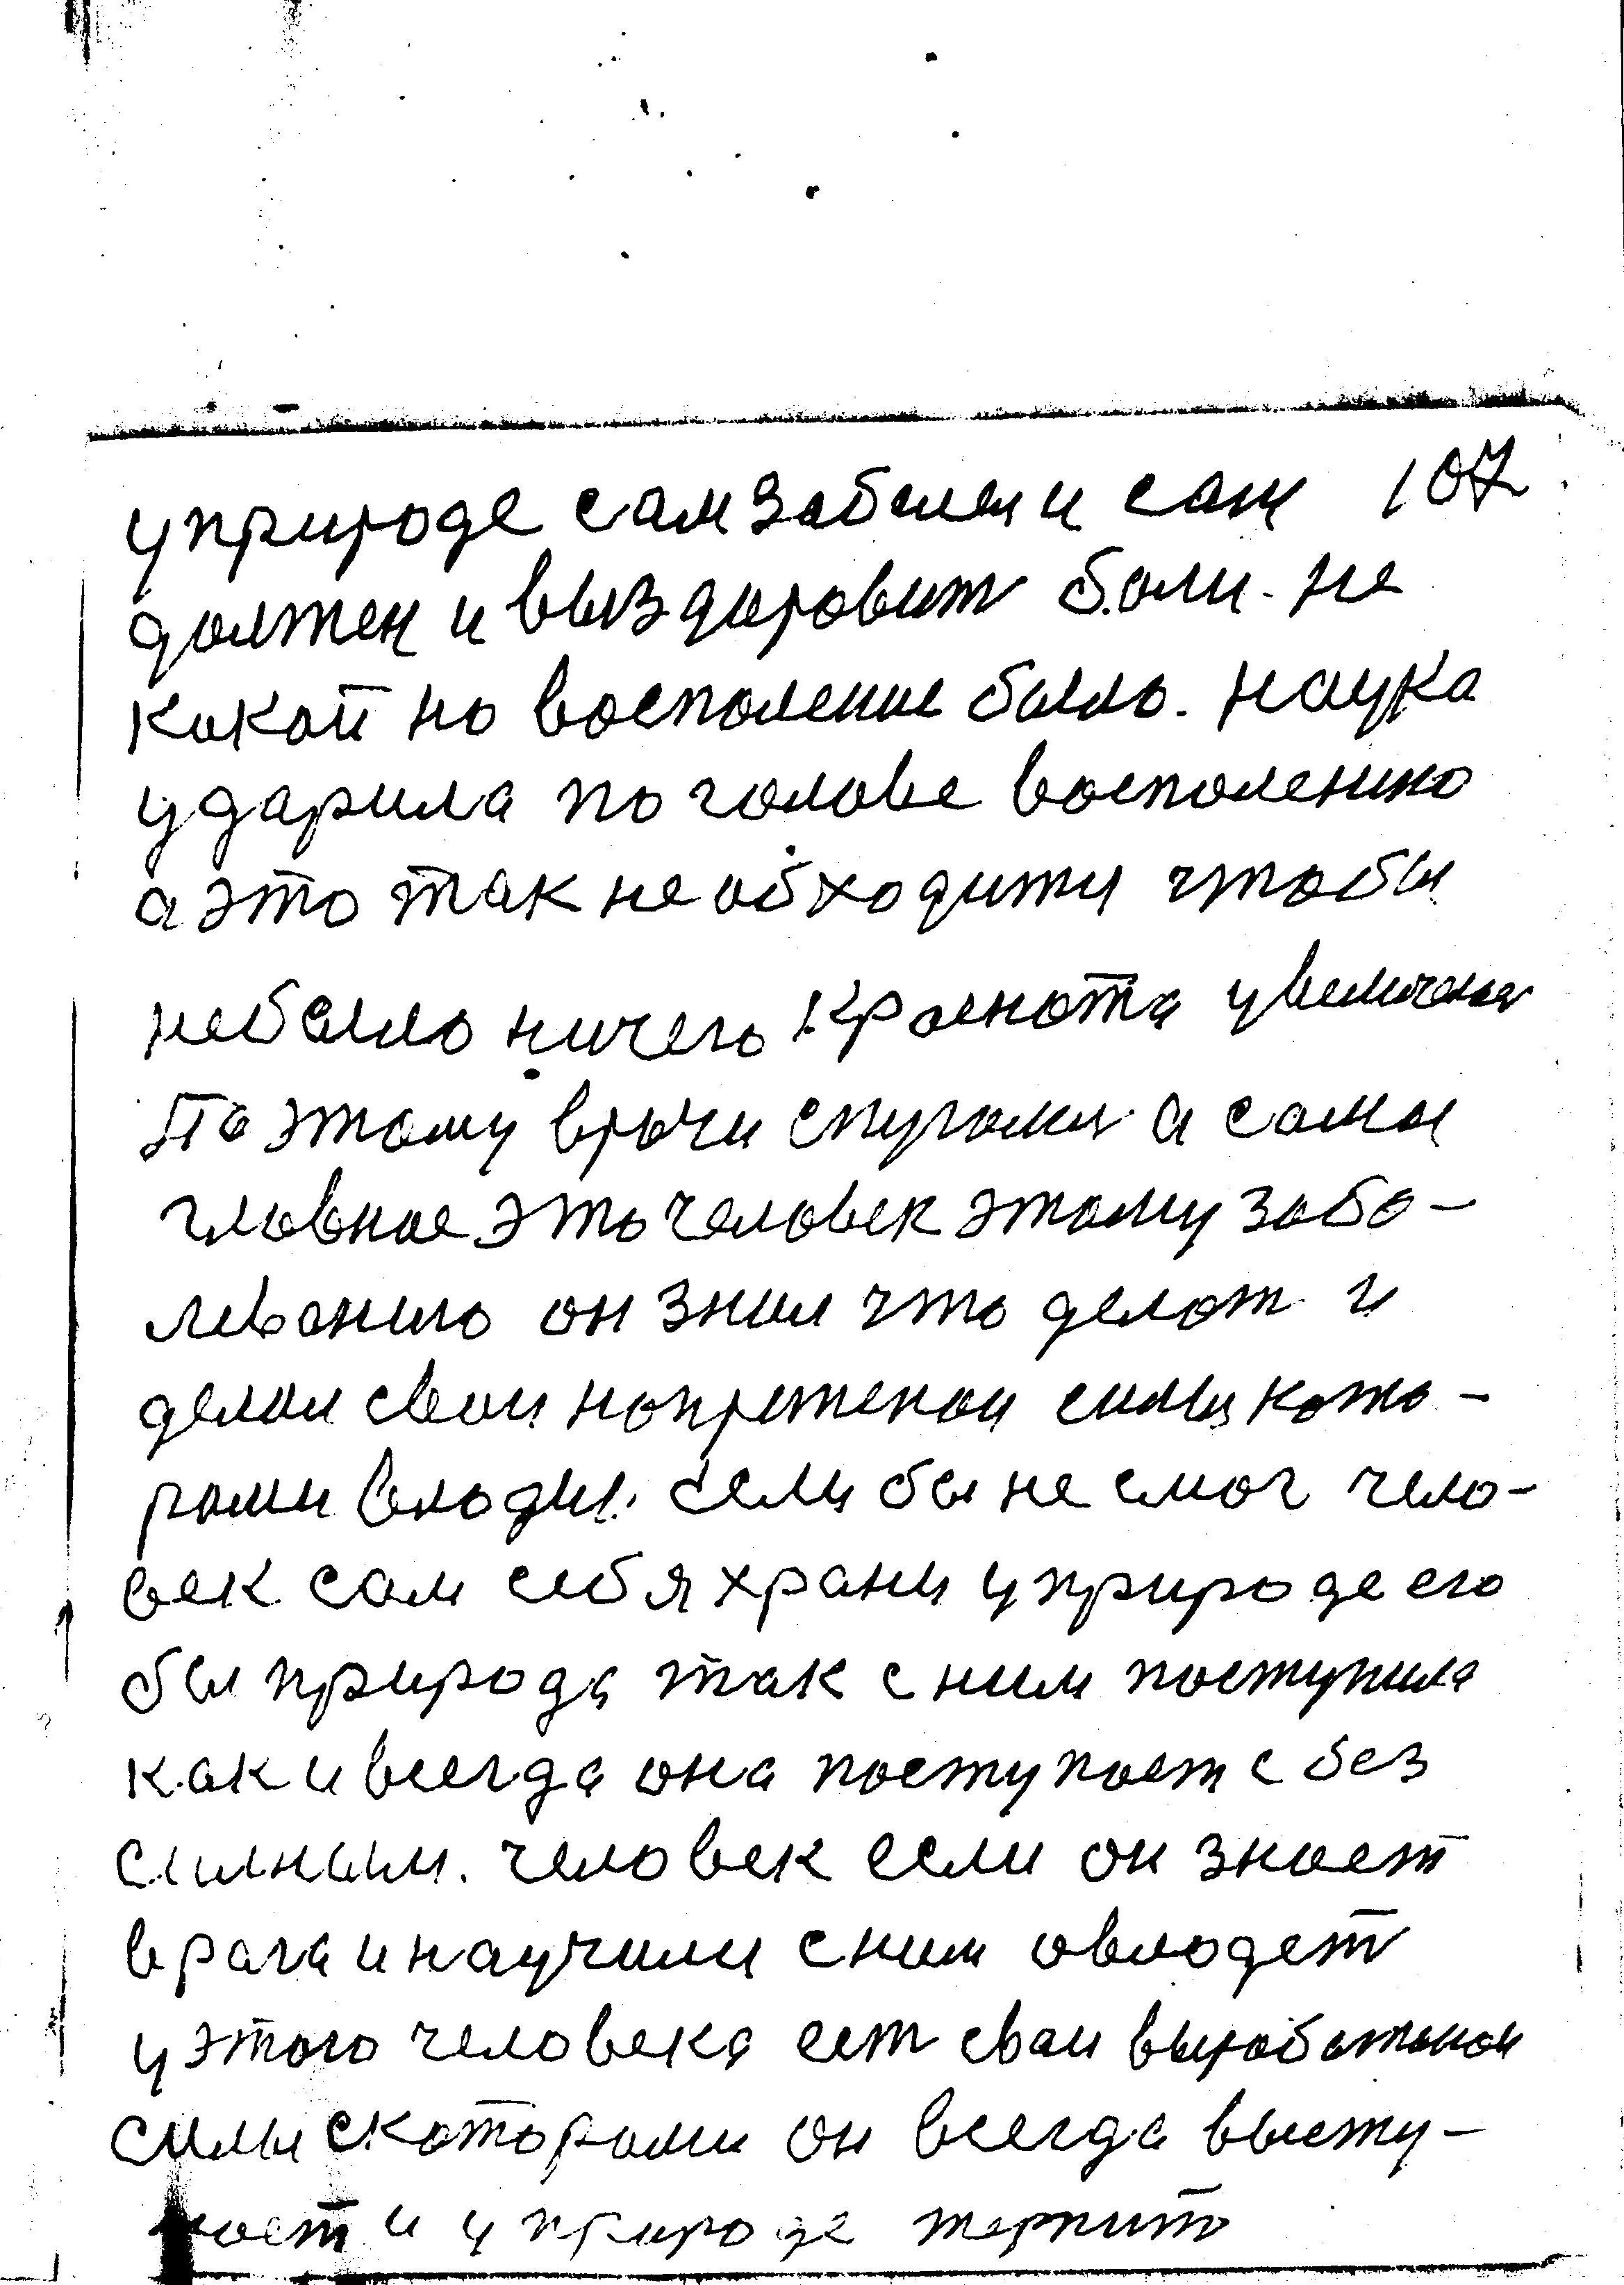 у природе сам заболел и сам 107
должен и выздоровит боли. не
какой но восполение было. наука
ударила по голове восполению
а это так не обходими чтобы
не было ничего краснота увеличелас
По этому врачи спугалис а самы
главное это человек этому забо-
леванию он знал что делат и
делал свои напряженои силы кото-
рами владил. Если бы не смог чело-
век сам себя храни у природе его
бы природа так с ним поступила
как и всегда она поступает с без
силным. человек если он знает
врага и научили с ним овладет
у этого человека ест свои выработанои
силы скоторами он всегда высту-
пает и у природе терпит